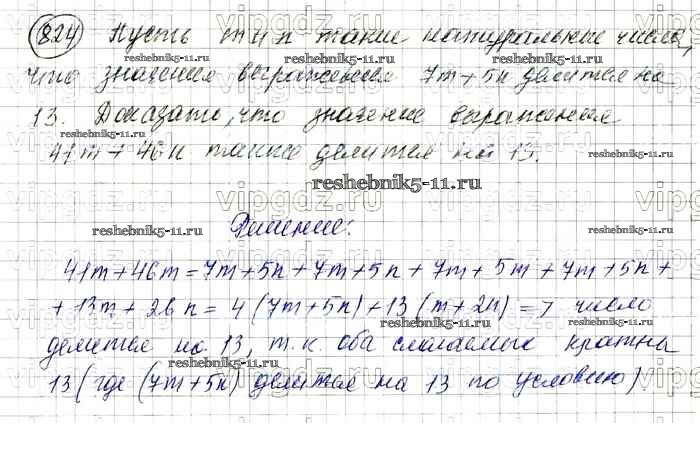 824 Пусть m и n такие натуральные числа,
что значения выражения 7m+5n делится на
13. Доказать, что значение выражения
41m + 46n также делится на 13.
reshebnik5-11.ru
Решение:
41m+46m=7m+5n+7m+5n+7m+5m+7m+5n+
+13m+26n= 4(7m+5n)+13(m+2n)=> число
делится на 13, т.к. оба слагаемых кратны
13 (где (7m+5n) делится на 13 по условию).